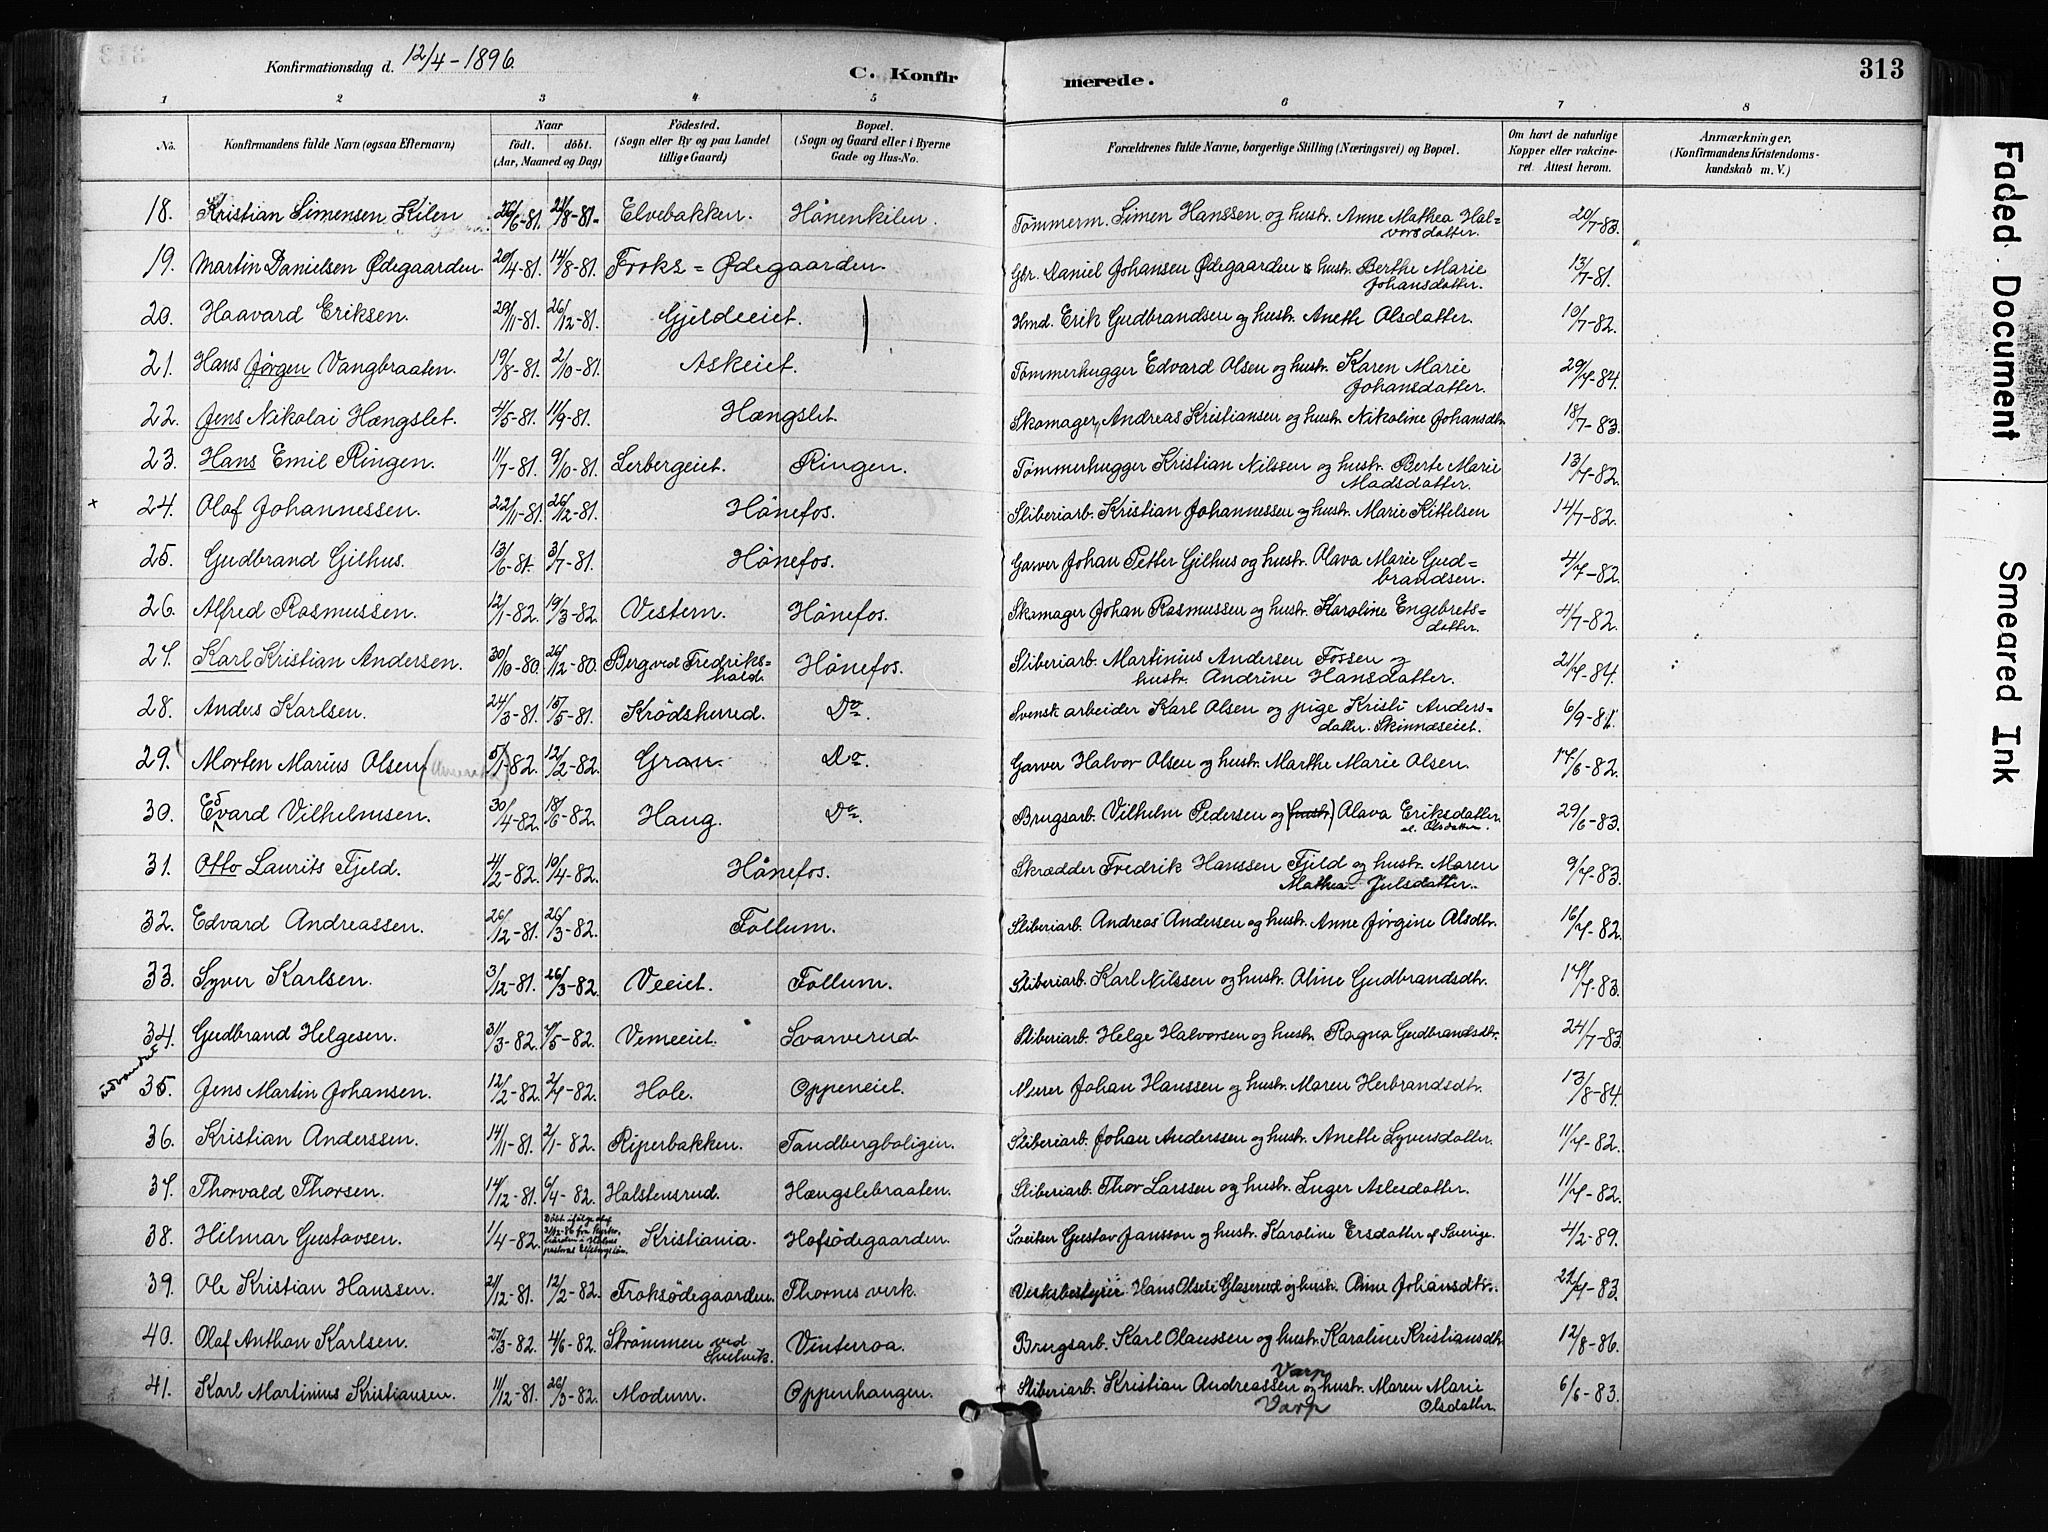 Konfirmationsdag d. 12/4-1896. C. Konfirmerede. 313
1 2 3 4 5 6 7 8
No. Konfirmandens fulde Navn (ogsaa Efternavn) Naar födt. döbt. (Aar, Maaned og Dag) Födested. (Sogn eller By og paa Landet tillige Gaard) Bopæl. (Sogn og Gaard eller i Byerne Gade og Hus-No. Forældrenes fulde Navne, borgerlige Stilling (Næringsvei) og Bopæl. Om havt de naturlige Kopper eller vakcineret. Attest herom. Anmærkninger. (Konfirmandens Kristendomskundskab m. V.)
18. Kristian Simensen Kilen 26/6-81. 21/8-81. Elvebakken. Hönenkilen. Tømmerm. Simen Hanssen og hustr. Anne Mathea Halvorsdatter. 20/7-83.
19. Martin Danielsen Ødegaarden 20/4-81. 14/8-81. Froks=Ødegaarden. Gbr. Daniel Johansen Ødegaarden & hustr. Berthe Marie Johansdatter. 13/7-81.
20. Haavard Eriksen. 29/11-81. 26/12-81. Gjeldeeiet. Hmd. Erik Gudbrandsen og hustr. Anette Olsdatter. 10/7-82.
21. Hans Jörgen Vangbraaten. 19/8-81. 2/10-81. Askeiet. Tømmerhugger Edvard Olsen og hustr. Karen Marie Johansdatter. 29/7-84.
22. Jens Nikolai Hængslet. 4/5-81. 11/9-81. Hængslet Skomager, Andreas Kristiansen og hustr. Nikoline Johansdtr. 18/7-83.
23. Hans Emil Ringen. 11/7-81. 9/10-81. Lerbergeiet. Ringen. Tømmerhugger Kristian Nilssen og hustr. Berte Marie Madsdatter. 13/7-82.
24. Olaf Johannessen. 22/11-81. 26/12-81. Hönefos. Sliberiarb. Kristian Johannessen og hustr. Marie Kittelsen 14/7-82.
25. Gudbrand Gilhus. 13/6-81. 3/7-81. Hönefos. Garver Johan Petter Gilhus og hustr. Olava Marie Gudbrandsen. 4/7-82.
26. Alfred Rasmussen. 12/1-82. 19/3-82. Vestern. Hönefos. Skomager Johan Rasmussen og hustr. Karoline Engebretsdatter. 4/7-82.
27. Karl Kristian Andersen. 30/10-80. 26/12-80. Berg ved Fredrikshald. Hönefos. Sliberiarb. Martinius Andersen Fossen og hustr. Andrine Hansdatter. 21/7-84.
28. Anders Karlsen. 24/3-81. 15/5-81. Krödsherred. Do. Svensk arbeider Karl Olsen og pige Kristi Andersdatter. Skinnæseiet. 6/9-81.
29. Morten Marius Olsen 5/1-82. 12/2-82. Gran. Do. Garver Halvor Olsen og hustr. Marthe Marie Olsen. 17/6-82.
30. Edvard Vilhelmsen. 30/4-82. 18/6-82. Haug. Do. Brugsarb. Vilhelm Pedersen og (hustr.) Olava Eriksdatter. el. Olsdatter. 29/6-83.
31. Otto Laurits Fjeld. 4/2-82. 10/4-82. Hönefos. Skrædder Fredrik Hanssen Fjeld og hustr. Maren Mathea Julsdatter. 9/7-83.
32. Edvard Andreassen. 26/12-81. 26/3-82. Follum. Sliberiarb. Andreas Andersen og hustr. Anne Jörgine Olsdtr. 16/7-82.
33. Syver Karlsen. 3/12-81. 26/3-82. Veeiet. Follum. Sliberiarb. Karl Nilssen og hustr. Oline Gudbrandsdtr. 17/7-83.
34. Gudbrand Helgesen. 31/3-82. 7/5-82. Vemeeiet. Svarverud Sliberiarb. Helge Halvorsen og hustr. Ragna Gudbrandsdtr. 24/7-83.
udvandret 35. Jens Martin Johansen. 12/2-82. 2/4-82. Hole. Oppeneiet. Murer Johan Hanssen og hustr. Maren Herbrandsdtr. 13/8-84.
36. Kristian Anderssen. 14/11-81. 2/1-82. Riperbakken. Tandbergboligen. Sliberiarb. Johan Anderssen og hustr. Anette Syversdatter. 11/7-82.
37. Thorvald Thorsen. 14/12-81. 6/4-82. Halstensrud. Hængslebraaten. Sliberiarb. Thor Larssen og hustr. Inger Aslesdatter. 11/7-82.
38. Hilmar Gustavsen. 1/4-82. Kristiania. Hofsödegaarden. Sveitser Gustav Jansson og hustr. Karoline Ersdatter af Sverige. 4/2-89.
39. Ole Kristian Hanssen. 21/12-81. 12/2-82. Froksödegaarden. Thornes verk. Verksbestyrer Hans Olsen Glaserud og hustr. Anne Johansdtr. 22/7-83.
40. Olaf Anthon Karlsen. 27/3-82. 4/6-82. Strömmen ved Svelvik. Vinterroa. Brugsarb. Karl Olaussen og hustr. Karoline Kristiansdtr. 12/8-86.
41. Karl Martinius Kristiansen. 11/12-81. 26/3-82. Modum. Oppenhaugen. Sliberiarb. Kristian Andreassen og hustr. Maren Marie Olsdatter. 6/6-83.
Varp
Varp
Faded Document
Smeared Ink